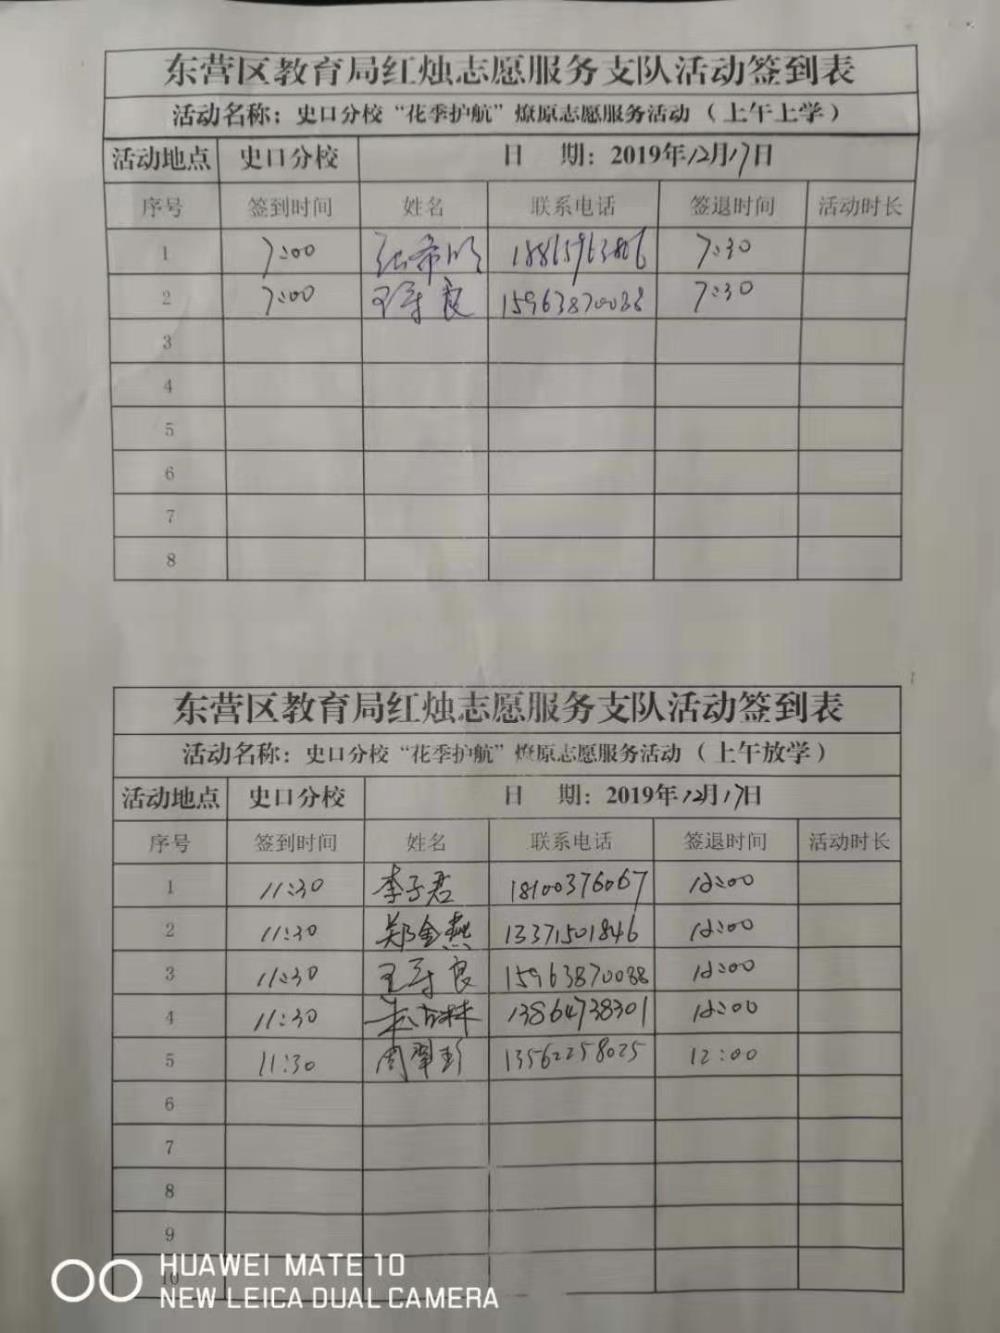 东营区教育局红烛志愿服务支队活动签到表
活动名称：史口分校“花季护航”燎原志愿服务活动（上午上学）
活动地点 史口分校 日 期：2019年12月17日
序号 签到时间 姓名 联系电话 签退时间 活动时长
1 7:00 7:30
2 7:00 15963870088 7:30
3
4
5
6
7
8
东营区教育局红烛志愿服务支队活动签到表
活动名称：史口分校“花季护航”燎原志愿服务活动（上午放学）
活动地点 史口分校 日 期：2019年12月17日
序号 签到时间 姓名 联系电话 签退时间 活动时长
1 11:30 李子君 18100376067 12:00
2 11:30 郑金燕 13371501846 12:00
3 11:30 15963870088 12:00
4 11:30 13864738301 12:00
5 11:30 周翠彭 13562258025 12:00
6
7
8
9
10
HUAWEI MATE 10
NEW LEICA DUAL CAMERA